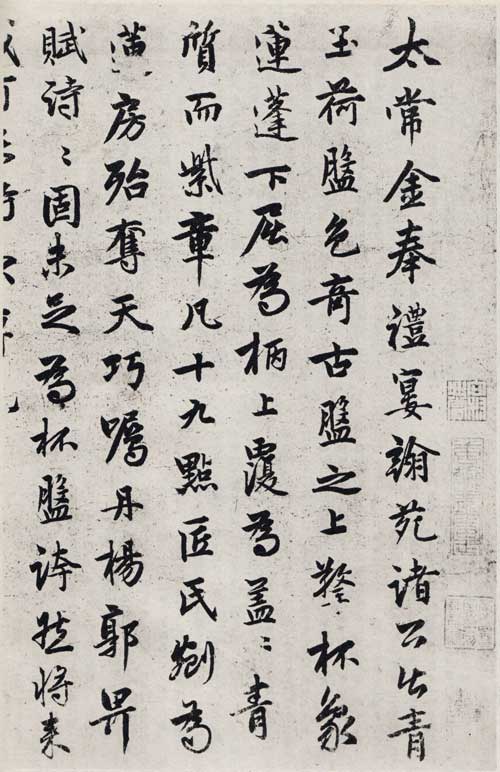 太常金奉禮宴翰苑諸公出青
玉荷盤色奇古盤之上擎杯象
蓮蓬下屈為柄上覆為蓋〻青
質而紫章凡十九點匠氏剜為
蓮房殆奪天巧囑丹楊郭畀
賦詩〻固未足為杯盤誇然將來